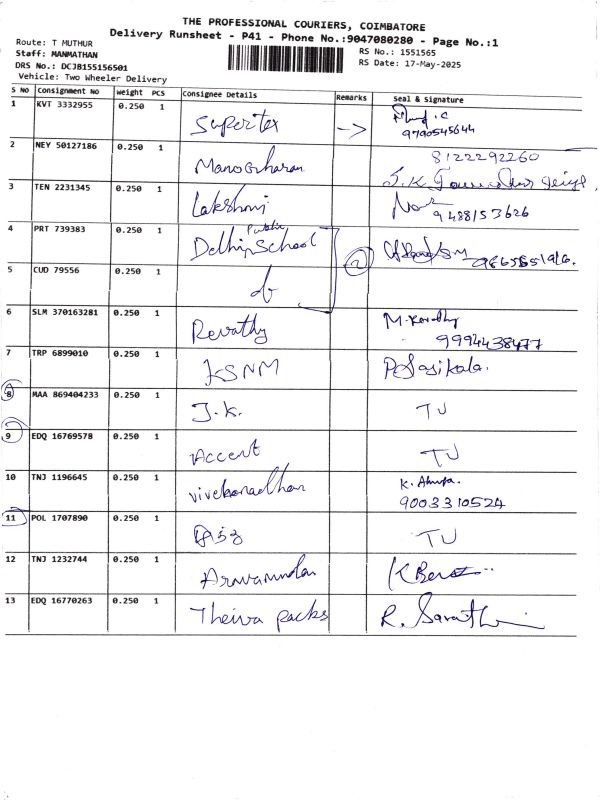 THE PROFESSIONAL COURIERS, COIMBATORE
Delivery Runsheet - P41 - Phone No.:9047080280 - Page No.:1
Route: T MUTHUR
Staff: MANMATHAN
DRS No.: DCJB155156501
Vehicle: Two Wheeler Delivery
RS No.: 1551565
RS Date: 17-May-2025
S NO Consignment No Weight PCS Consignee Details Remarks Seal & Signature
1 KVT 3332955 0.250 1 Supertex → 9790545644
2 NEY 50127186 0.250 1 Manoharan 8122292260
3 TEN 2231345 0.250 1 Lakshmi 9488153626
4 PRT 739383 0.250 1 Delhi Public School 2
5 CUD 79556 0.250 1
6 SLM 370163281 0.250 1 Revathy M. Revathy 9994438477
7 TRP 6899010 0.250 1 KSNM P. Sasikala.
8 MAA 869404233 0.250 1 J.K. TU
9 EDQ 16769578 0.250 1 Accent TU
10 TNJ 1196645 0.250 1 9003310524
11 POL 1707890 0.250 1 TU
12 TNJ 1232744 0.250 1
13 EDQ 16770263 0.250 1 Theiva packs R. Sarathi